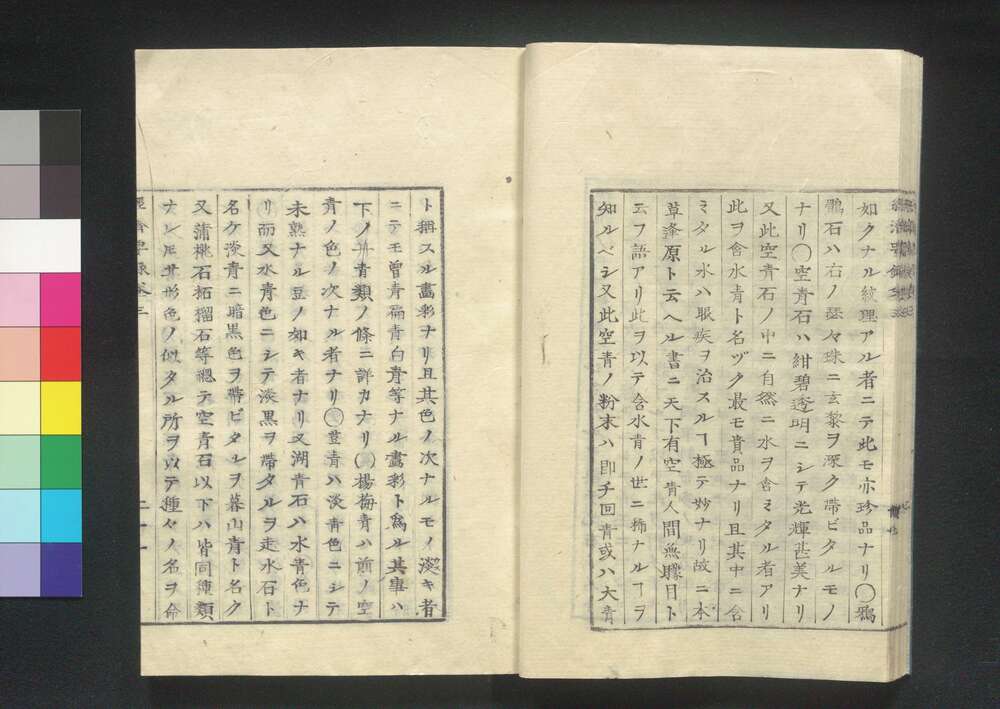 如クナル紋理アル者ニテ此モ亦珍品ナリ〇鴉
鶻石ハ右ノ瑟々珠ニ玄黎ヲ深ク帶ビタルモノ
ナリ〇空青石ハ紺碧透明ニシテ光輝甚美ナリ
又此空青石ノ中ニ自然ニ水ヲ含ミタル者アリ
此ヲ含水青ト名ヅク最モ貴品ナリ且其中ニ含
ミタル水ハ眼疾ヲ治スルヿ極テ妙ナリ故ニ本
草逢原ト云ヘル書ニ天下有空青人間無矇目ト
云フ語アリ此ヲ以テ含水青ノ世ニ稀ナルヿヲ
知ルベシ又此空青ノ粉末ハ即チ回青或ハ大青
ト稱スル畵彩ナリ且其色ノ次ナルモノ淡キ者
ニテモ曾青扁青白青等ナル畵彩ト爲ル其事ハ
下ノ丹青類ノ條ニ詳カナリ〇楊梅青ハ前ノ空
青ノ色ノ次ナル者ナリ〇豆青ハ淡青色ニシテ
未熟ナル豆ノ如キ者ナリ又湖青石ハ水青色ナ
リ而又水青色ニシテ淡黒ヲ帶タルヲ走水石ト
名ケ淡青ニ暗黒色ヲ帶ビタルヲ暮山青ト名ク
又蒲桃石柘榴石等總テ空青石以下ハ皆同種類
ナレドモ其形色ノ似タル所ヲ以テ種々ノ名ヲ命